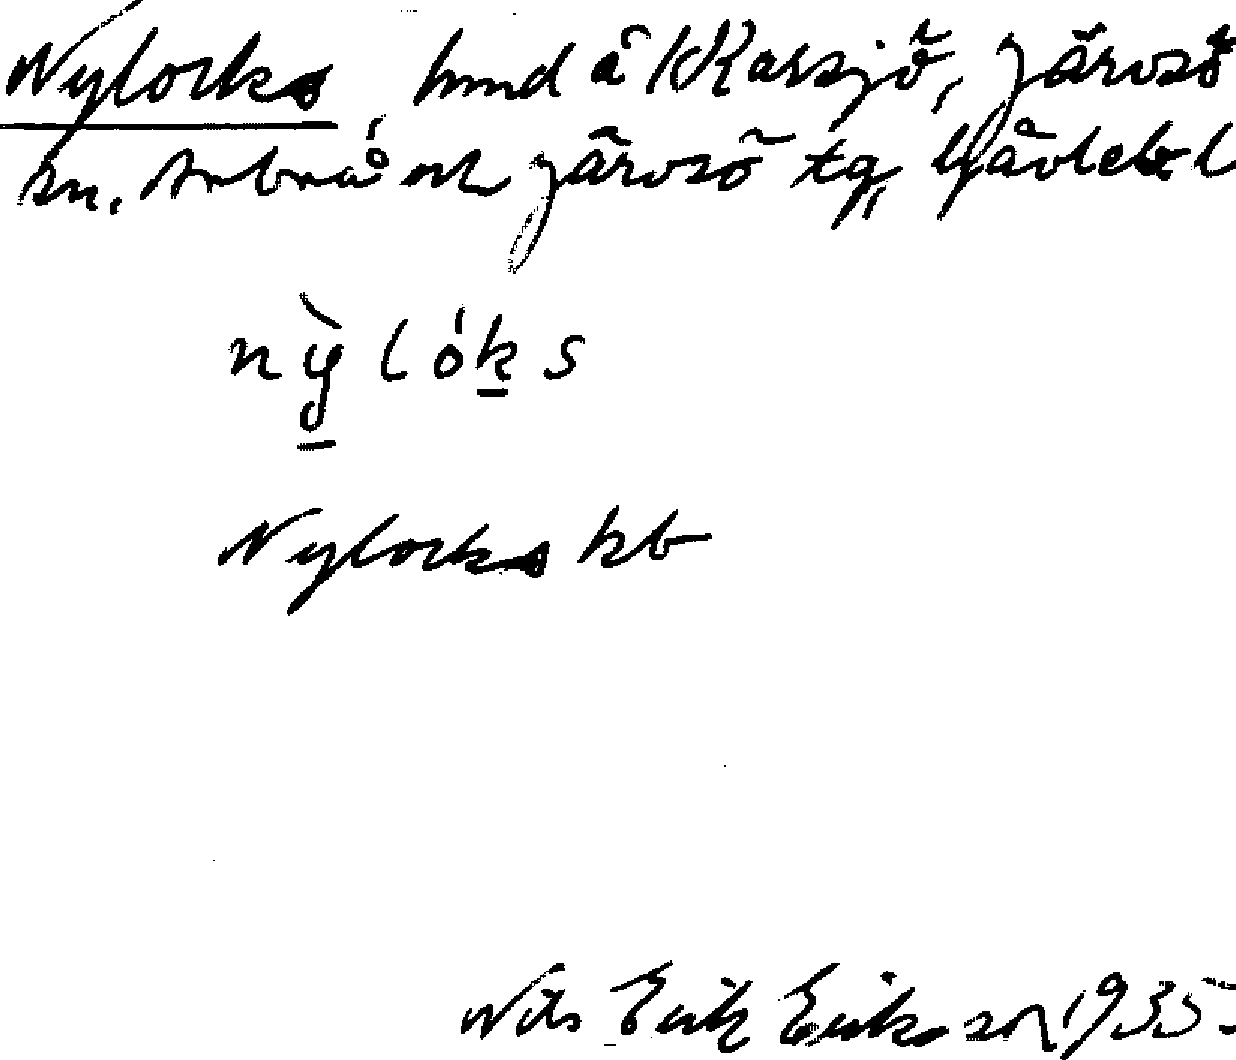 Nylocks, hmd å Karsjö, Järvsö
sn. Arbrå och Järvsö tg, Gävlebl
nỳlóks
Nylocks kb
Nils Erik Eriksson 1935.